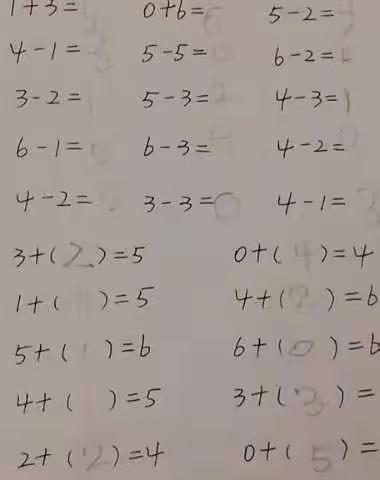 1+3=
0+6=6
5-2=
4-1=3
5-5=0
6-2=4
3-2=1
5-3=2
4-3=1
6-1=
6-3=
4-2=
4-2=
3-3=0
4-1=3
3+(2)=5
0+(4)=4
1+( )=5
4+(2)=6
5+(1)=6
6+(0)=6
4+( )=5
3+(3)=
2+(2)=4
0+(5)=